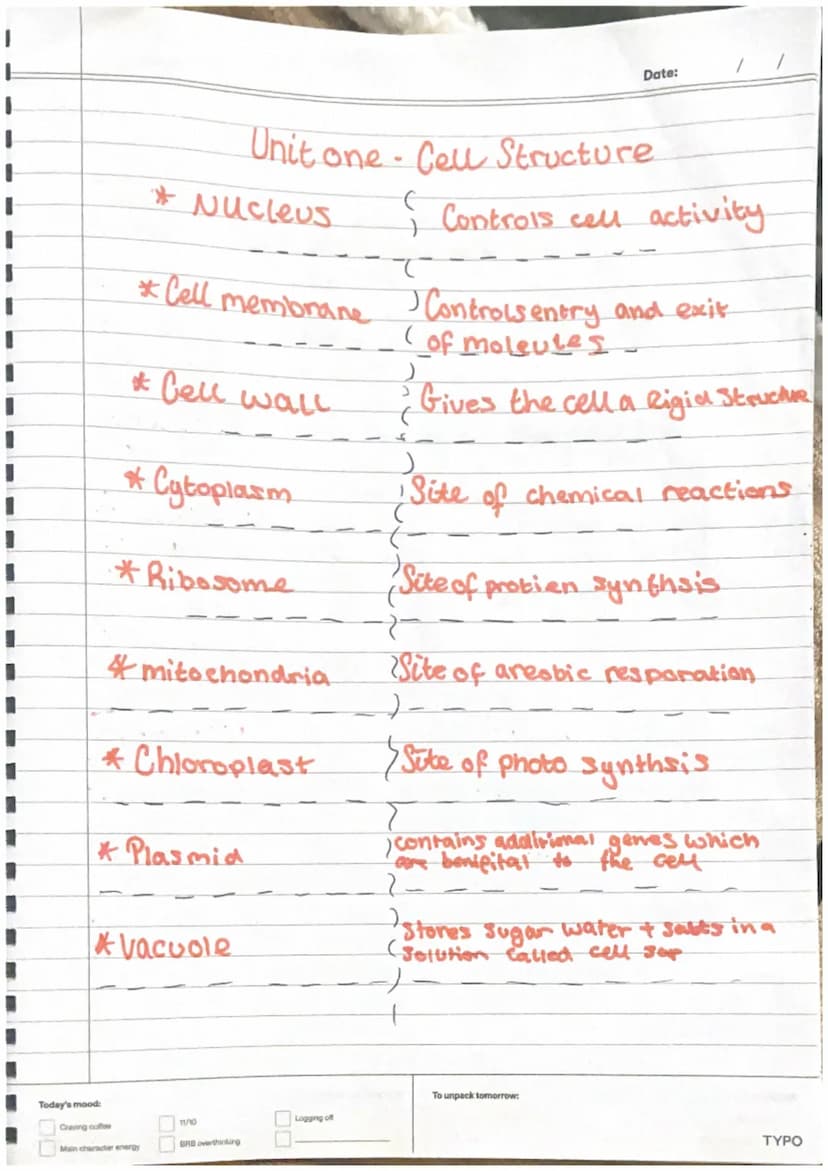 Date: / /
Unit one - Cell Structure
* Nucleus Controls cell activity
* Cell membrane Controls entry and exit
of moleules
* Cell wall Gives the cell a Rigid Structure
* Cytoplasm Site of chemical reactions
* Ribosome Site of protien synthsis
* mitochondria Site of areobic resporation
* Chloroplast Site of photo synthsis
* Plasmid contains additional genes which
are benifital to the cell
* Vacuole Stores sugar water + salts in a
solution called cell sap
Today's mood: To unpack tomorrow:
Craving coffee 11/10 Logging off
Main character energy BRB overthinking
TYPO